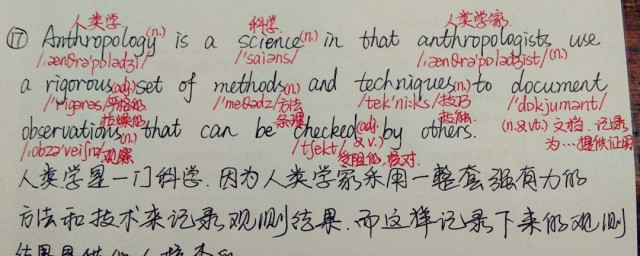 人类学 科学 人类学家
⑰ Anthropology (n.) is a science (n.) in that anthropologists use
/ˌænθrə'pɒlədʒi/ /'saiəns/ /ˌænθrə'pɒlədʒist/ (n.)
a rigorous (adj.) set of methods (n.) and techniques (n.) to document
/'rigərəs/ 严格的 /'meθədz/ 方法 /tek'ni:ks/ 技巧 /'dɒkjumənt/
条理 技能
observations (n.) that can be checked (adj. & v.) by others. (n.&vt.) 文档. 记录
/ˌɒbzə'veiʃn/ 观察 /tʃekt/ 受阻的, 核对. 为…提供证明
人类学是一门科学. 因为人类学家采用一整套强有力的
方法和技术来记录观测结果. 而这样记录下来的观测
结果是供他人核查的